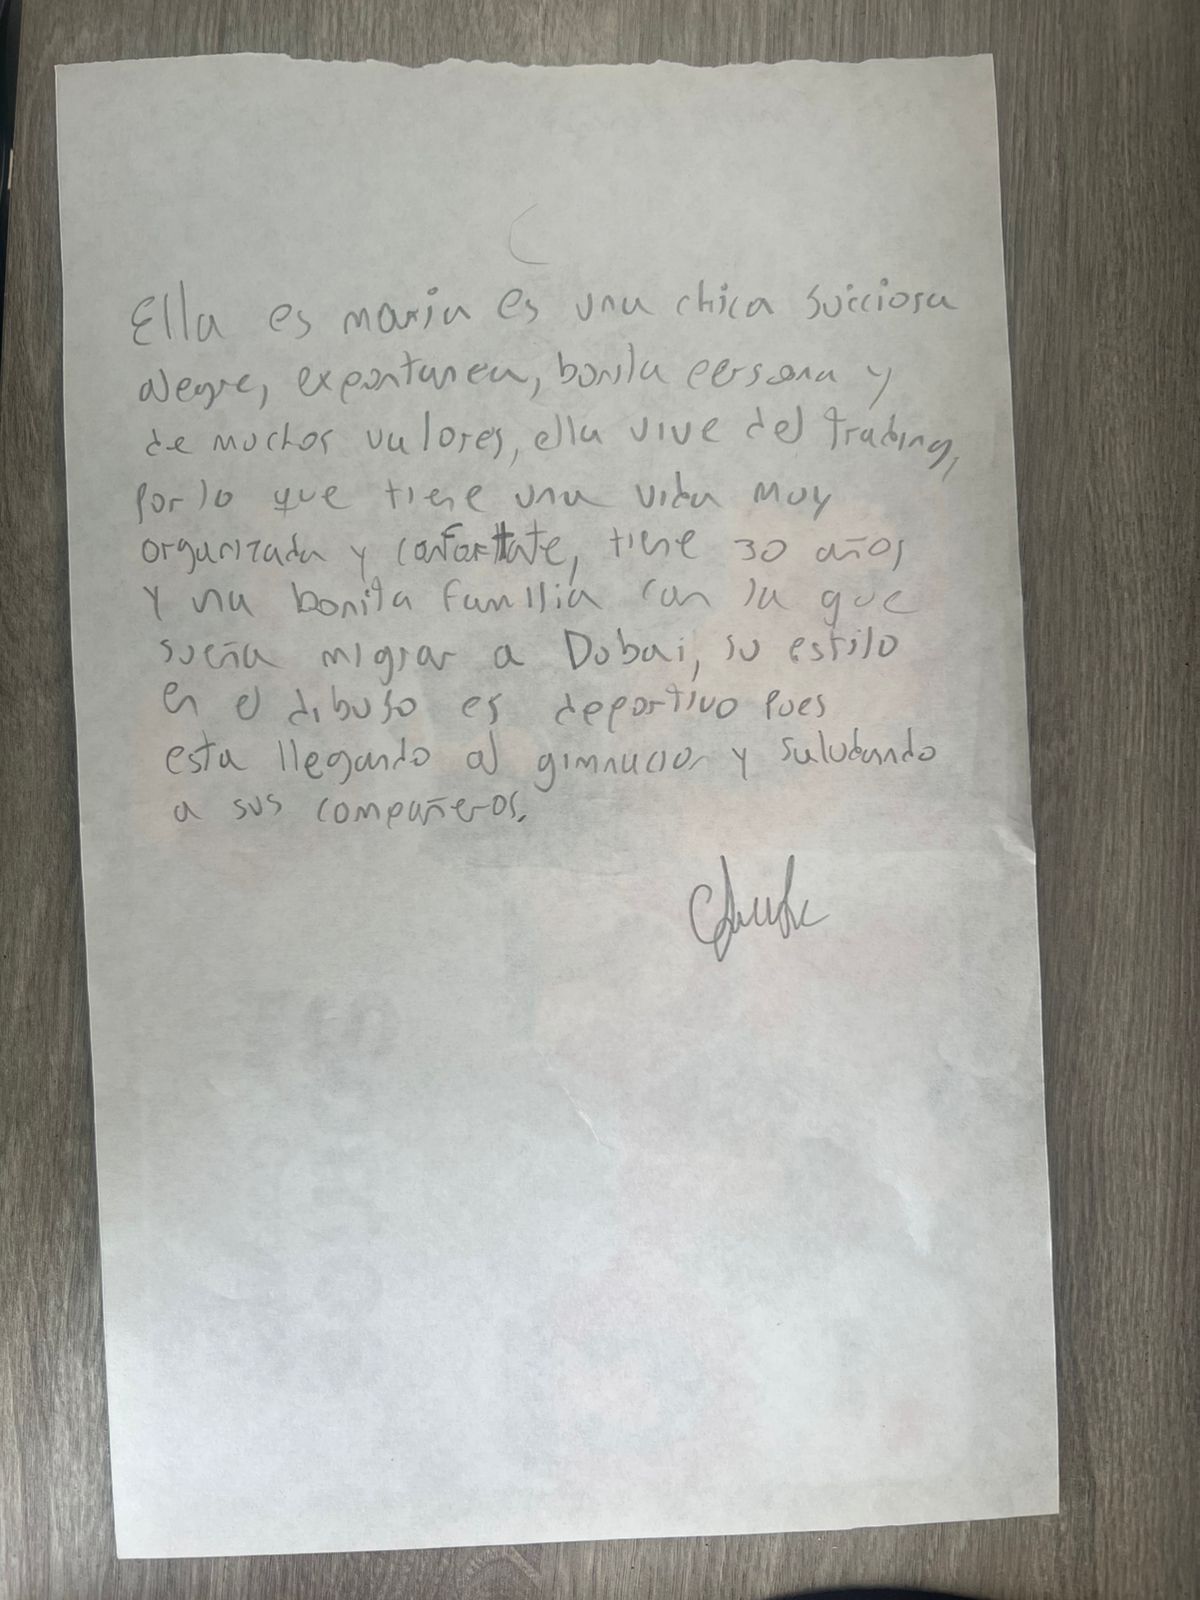 Ella es maria es una chica
alegre, expontanea, bonita persona y
de muchos valores, ella vive del trading,
por lo que tiene una vida muy
organizada y confortate, tiene 30 años
y una bonita familia con la que
sueña migrar a Dubai, su estilo
en el dibujo es deportivo pues
esta llegando al gimnacior y saludando
a sus compañeros.